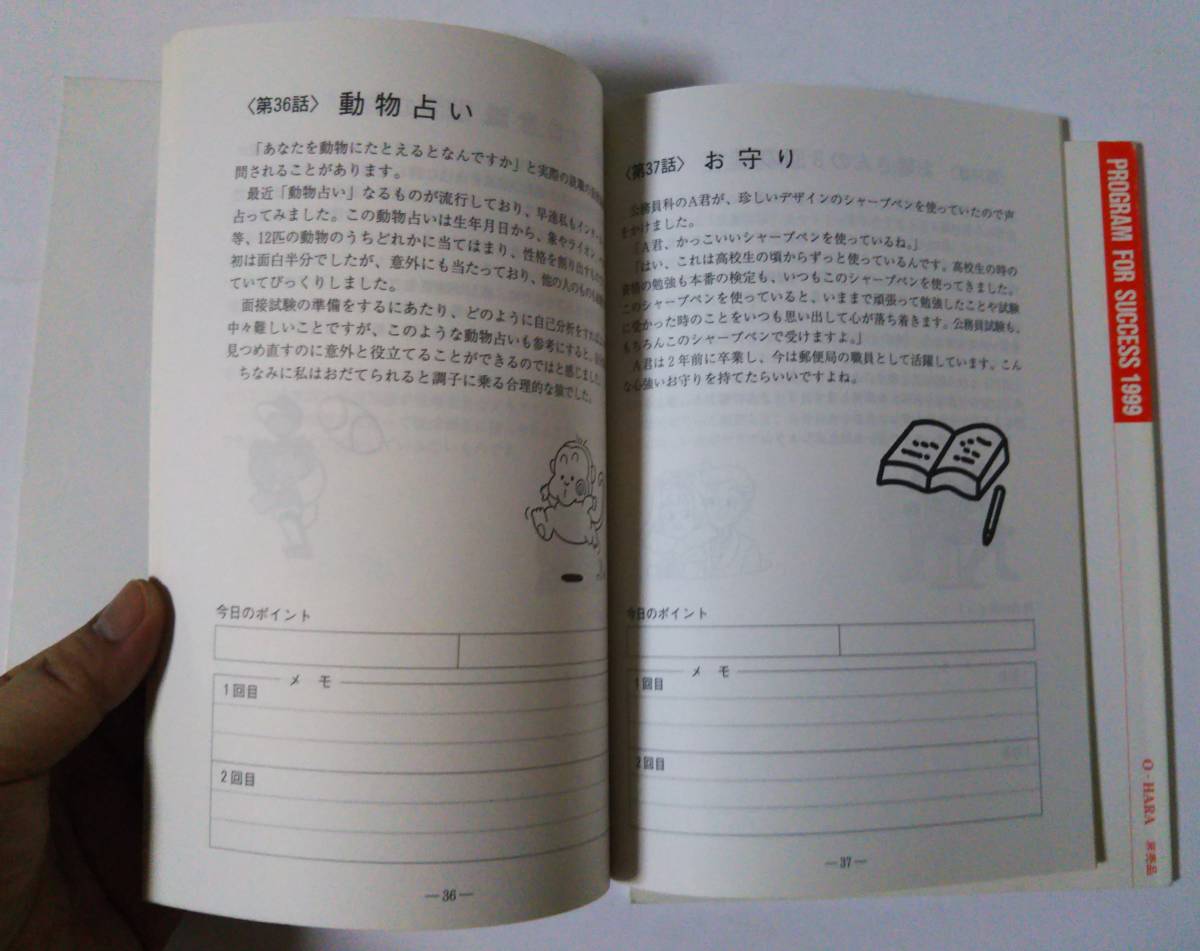 〈第36話〉 動物占い
「あなたを動物にたとえるとなんですか」と実際の就職の
問されることがあります。
最近「動物占い」なるものが流行しており、早速私もインター
占ってみました。この動物占いは生年月日から、象やライオン
等、12匹の動物のうちどれかに当てはまり、性格を割り出すもの
初は面白半分でしたが、意外にも当たっており、他の人のものも
ていてびっくりしました。
面接試験の準備をするにあたり、どのように自己分析をすれば
中々難しいことですが、このような動物占いも参考にすると、
見つめ直すのに意外と役立てることができるのではと感じました
ちなみに私はおだてられると調子に乗る合理的な猿でした。
今日のポイント
メモ
1回目
2回目
―36―
〈第37話〉 お守り
公務員科のA君が、珍しいデザインのシャープペンを使っていたので声
をかけました。
「A君、かっこいいシャープペンを使っているね。」
「はい、これは高校生の頃からずっと使っているんです。高校生の時の
の勉強も本番の検定も、いつもこのシャープペンを使ってきました。
このシャープペンを使っていると、いままで頑張って勉強したことや試験
に受かった時のことをいつも思い出して心が落ち着きます。公務員試験も、
もちろんこのシャープペンで受けますよ。」
A君は2年前に卒業し、今は郵便局の職員として活躍しています。こん
な心強いお守りを持てたらいいですよね。
今日のポイント
メモ
1回目
2回目
―37―
PROGRAM FOR SUCCESS 1999
O-HARA 非売品